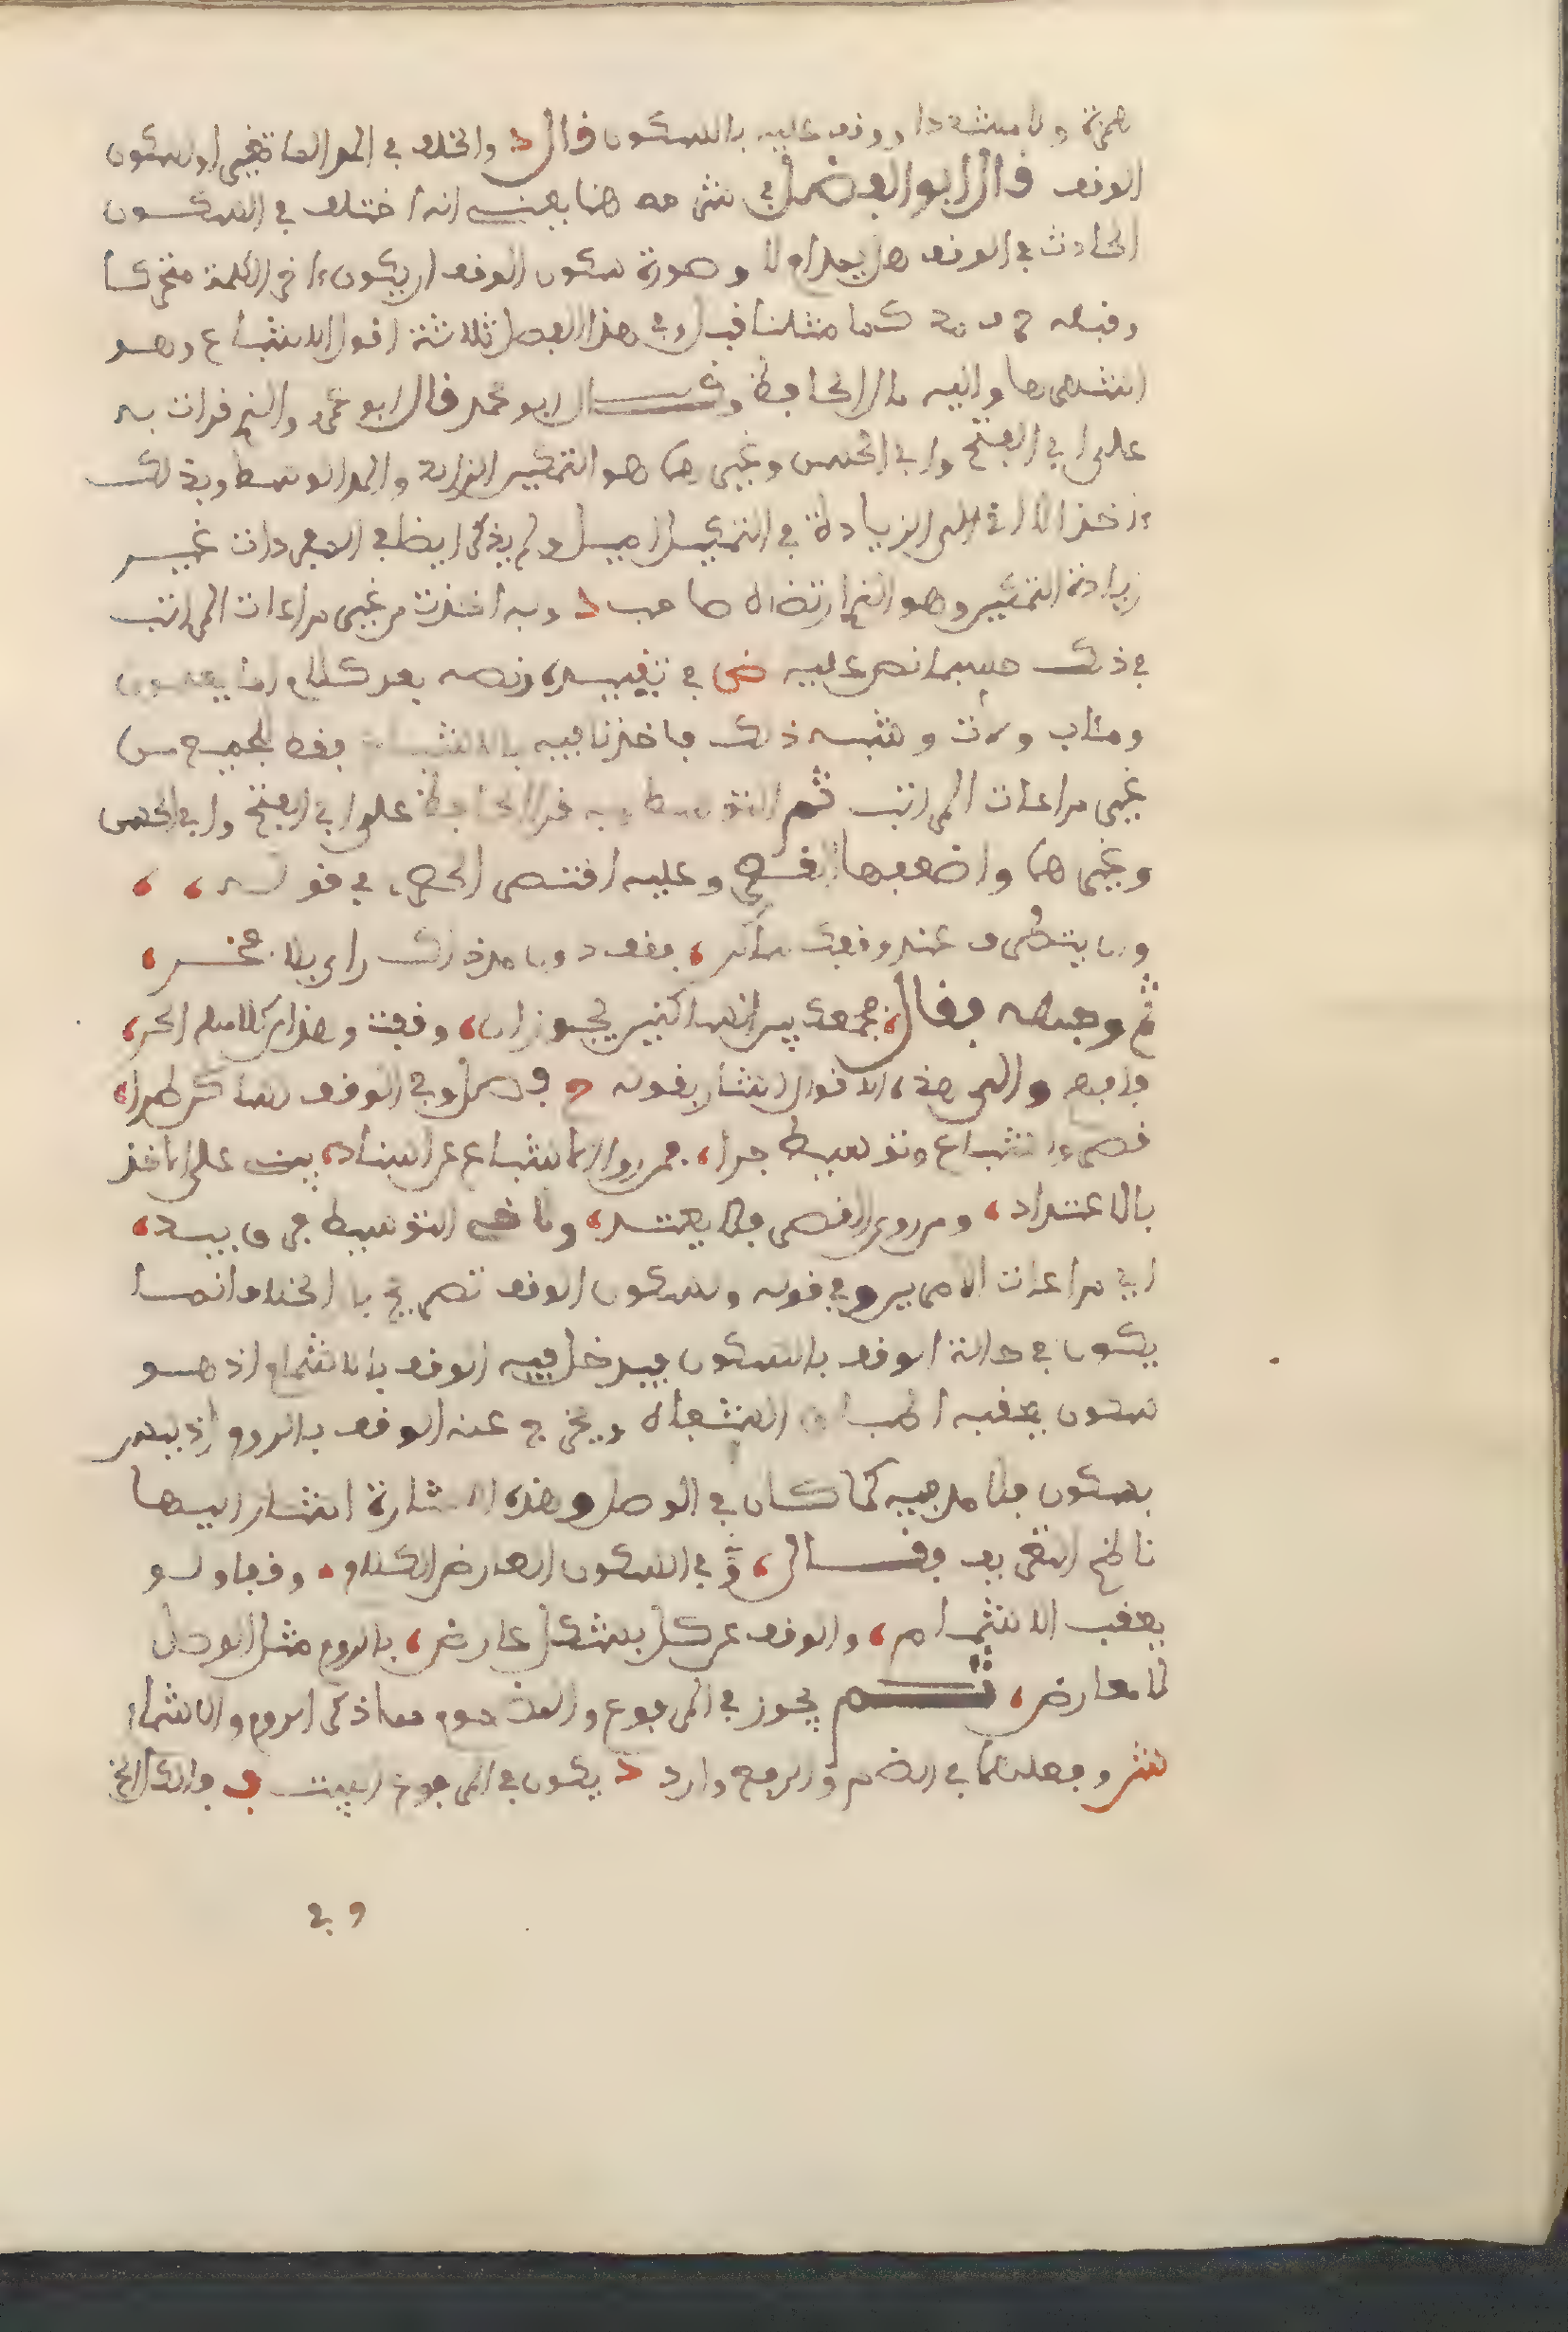 همزة ولا مشددا ووقف عليه بالسكون قال د والخلف في المد لما تغيرا ولسكون
الوقف قال ابو الفضل في شرحه هنا يعني انه اختلف في السكون
الحادث في الوقف هل يمد ام لا وصورة سكون الوقف ان يكون ءاخر الكلمة متحركا
وقبله حرف مد كما مثلنا قبل وفي هذا الفصل ثلاثة اقوال الاشباع وهو
اشهرها واليه مال الحافظ وقال ابو محمد قال ابو عمرو والذي قرات به
على ابي الفتح وابي الحسن وغيرهما هو التمكين الزائد والمد الوسط وبذلك
ءاخذ الا اني الى الزيادة في التمكين اميل ولم يذكر ايضا في المفردات غير
زيادة التمكين وهو الذي ارتضاه صاحب د وبه اخذت من غير مراعات المراتب
في ذلك حسبما نص عليه في تقييده ونصه بعد كلام اما يعلمون
ومئاب وشبه ذلك فاخذنا فيه بالاشباع فقط للجميع من
غير مراعات المراتب ثم التوسط وبه قرا الحافظ على ابي الفتح وابي الحسن
وغيرهما واضعفها القصر وعليه اقتصر الحصري في قوله ،،
وان يتطرف عند وقفك ساكن ، فقف دون مد ذاك رايي بلا فخر ،
ثم وجهه فقال ، فجمعك بين الساكنين يجوز ان ، وقفت وهذا من كلامهم الحر ،
فافهم والى هذه الاقوال اشار بقوله فصل وفي الوقف ساكن طرا ،
قصر واشباع وتوسيط جرا ، فمن روى الاشباع عن اسناده يبن على الاخذ
بالاعتداد ، ومن روى القصر فلا يعتد ، وناهج التوسيط فرقا يبد ،
اي مراعات الامرين وفي قوله وسكون الوقف تصريح بان الخلاف انما
يكون في حالة الوقف بالسكون فيدخل فيه الوقف بالاشمام اذ هو
سكون يعقبه اطباق الشفاه ويخرج عنه الوقف بالروم اذ ليس
بسكون فلا مد فيه كما كان في الوصل وهذه الاشارة اشار اليها
ناظم التعريف فقال ، وفي السكون العارض الخلاف ، وقفا ولو
يعقب الاشمام ، والوقف عن كل بشكل عارض ، بالروم مثل الوصل
لا معارض ، ثم يجوز في المرفوع والمضموم معا ذكر الروم والاشمام
ش وفعلهما في الضم والرفع وارد د يكون في المرفوع البيت ف والشكل الخ
وفي